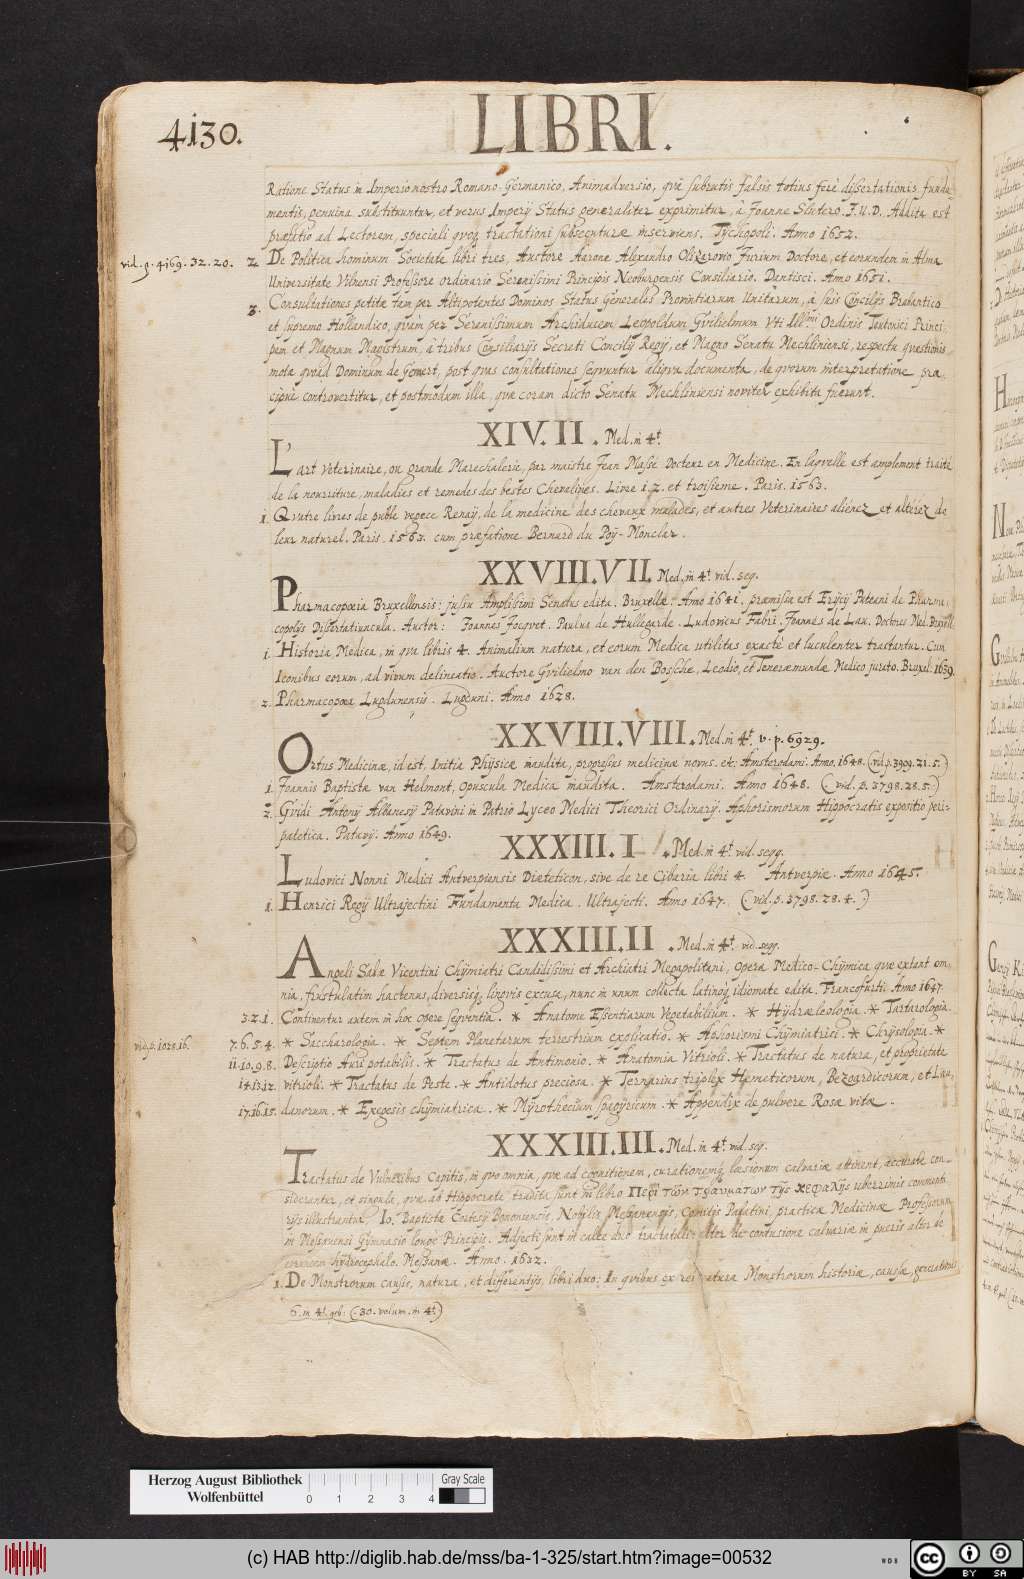 4130.
LIBRI.
Ratione Status in Imperio nostro Romano-Germanico, Animadversio, quâ subrutis falsis totius ferè dissertationis funda-
mentis, genuina substituuntur, et verus Imperij Status generaliter exprimitur, à Joanne Slütero. J.U.D. Addita est
præfatio ad Lectorem, speciali quoq tractationi subsecuturæ inserviens. Tychopoli. Anno 1652.
vid. p. 4169. 32. 20. 2. De Politica hominum Societate libri tres, Auctore Aarone Alexandro Olizarovio Jurium Doctore, et eorundem in Alma
Universitate Vilnensi Professore ordinario Serenissimi Principis Neoburgensis Consiliario. Dantisci. Anno 1651.
3. Consultationes petitæ tam per Altipotentes Dominos Status Generales Provintiarum Unitarum, à suis Concilijs Brabantico
et supremo Hollandico, quàm per Serenissimum Archiducem Leopoldum Gvilielmum Uti Illmi Ordinis Teutonici Princi-
pem et Magnum Magistrum, à tribus Consiliarijs Secreti Concilij Regij, et Magno Senatu Mechliniensi, respectu quæstionis
motæ quoad Dominum de Gemert, post quas consultationes sequuntur aliqva documenta, de quorum interpretatione præ-
cipuè controvertitur, et postmodum illa, quæ coram dicto Senatu Mechliniensi noviter exhibita fuerunt.
XIV. II. Med. in 4t.
L'art Veterinaire, ou grande Marechalerie, par maistre Jean Massé Docteur en Medicine. En laqvelle est amplement traité
de la nourriture, maladies et remedes des bestes Chevalines. Livre 1. 2. et troisieme. Paris. 1563.
1. Qvatre livres de puble vegece Renay, de la medicine des chevaux malades, et autres Veterinaires alienez et alterez de
leur naturel. Paris. 1563. cum præfatione Bernard du Poÿ-Monclar.
XXVIII. VII. Med. in 4t. vid. seq.
Pharmacopoeia Bruxellensis: jussu Amplissimi Senatus edita. Bruxellæ. Anno 1641. præmissa est Erycij Puteani de Pharma-
copolijs Dissertatiuncula. Auctor: Joannes Jocqvet. Paulus de Hullegarde. Ludovicus Fabri. Joannes de Lau. Doctores Med. Bruxell.
1. Historia Medica, in qva libris 4. Animalium natura, et eorum Medica utilitas exactè et luculenter tractantur. Cum
Iconibus eorum, ad vivum delineatis. Auctore Gvilielmo van den Bossche, Leodio, et Teneræmundæ Medico jurato. Bruxel. 1639.
2. Pharmacopoea Lugdunensis. Lugduni. Anno 1628.
XXVIII. VIII. Med. in 4t. v. p. 6929.
Ortus Medicinæ, id est, Initia Physicæ inaudita, progressus medicinæ novus. etc: Amsterodami. Anno. 1648. (vid. p. 3909. 21. 5.)
1. Joannis Baptistæ van Helmont, Opuscula Medica inaudita. Amsterodami. Anno 1648. (vid. p. 3798. 28. 5.)
2. Gvidi Antonij Albanesij Patavini in Patrio Lyceo Medici Theorici Ordinarij. Aphorismorum Hippocratis expositio peri-
patetica. Patavij. Anno 1649.
XXXIII. I. Med. in 4t. vid. seqq.
Ludovici Nonni Medici Antverpiensis Diæteticon, sive de re Cibaria libri 4. Antverpiæ. Anno 1645.
1. Henrici Regij Ultrajectini Fundamenta Medica. Ultrajecti. Anno 1647. (vid. p. 3798. 28. 4.)
XXXIII. II. Med. in 4t. vid. seqq.
Angeli Salæ Vicentini Chymiatri Candidissimi et Archiatri Megapolitani, Opera Medico-Chymica quæ extant om-
nia, frustulatim hactenus, diversisq linguis excusa, nunc in unum collecta latinoq idiomate edita. Francofurti. Anno 1647.
3. 2. 1. Continentur autem in hoc opere seqventia. * Anatome Essentiarum Vegetabilium. * Hydræleologia. * Tartarologia.
vid. p. 1028. 16. 7. 6. 5. 4. * Saccharologia. * Septem Planetarum terrestrium explicatio. * Aphorismi Chymiatrici. * Chrysologia. *
11. 10. 9. 8. Descriptio Auri potabilis. * Tractatus de Antimonio. * Anatomia Vitrioli. * Tractatus de natura, et proprietate
14. 13. 12. vitrioli. * Tractatus de Peste. * Antidotus preciosa. * Ternarius triplex Hemeticorum, Bezoardicorum, et Lau-
17. 16. 15. danorum. * Exegesis chymiatrica. * Myrothecium spagyricum. * Appendix de pulvere Rosæ vitæ.
XXXIII. III. Med. in 4t. vid. seq.
Tractatus de Vulneribus Capitis, in quo omnia, quæ ad cognitionem, curationemq læsionum calvariæ attinent, accuratè con-
siderantur, et singula, quæ ab Hippocrate tradita sunt in libro Περὶ τῶν τραυμάτων τῆς κεφαλῆς uberrimis commenta-
rijs illustrantur, Io. Baptistæ Cortesij Bononiensis, Nobilis Messanensis, Comitis Palatini, practicæ Medicinæ Professorum
in Messanensi Gymnasio longè Principis. Adjecti sunt in calce duo tractatuli: alter de contusione calvariæ in pueris alter de
hydrocephalo. Messanæ. Anno. 1632.
1. De Monstrorum causis, natura, et differentijs, libri duo: In qvibus ex rei natura Monstrorum historiæ, causæ, generationes
6. in 4t. geb: (:30. volum. in 4t)
Herzog August Bibliothek
Wolfenbüttel
0 1 2 3 4
Gray Scale
(c) HAB http://diglib.hab.de/mss/ba-1-325/start.htm?image=00532
WDB
cc BY SA